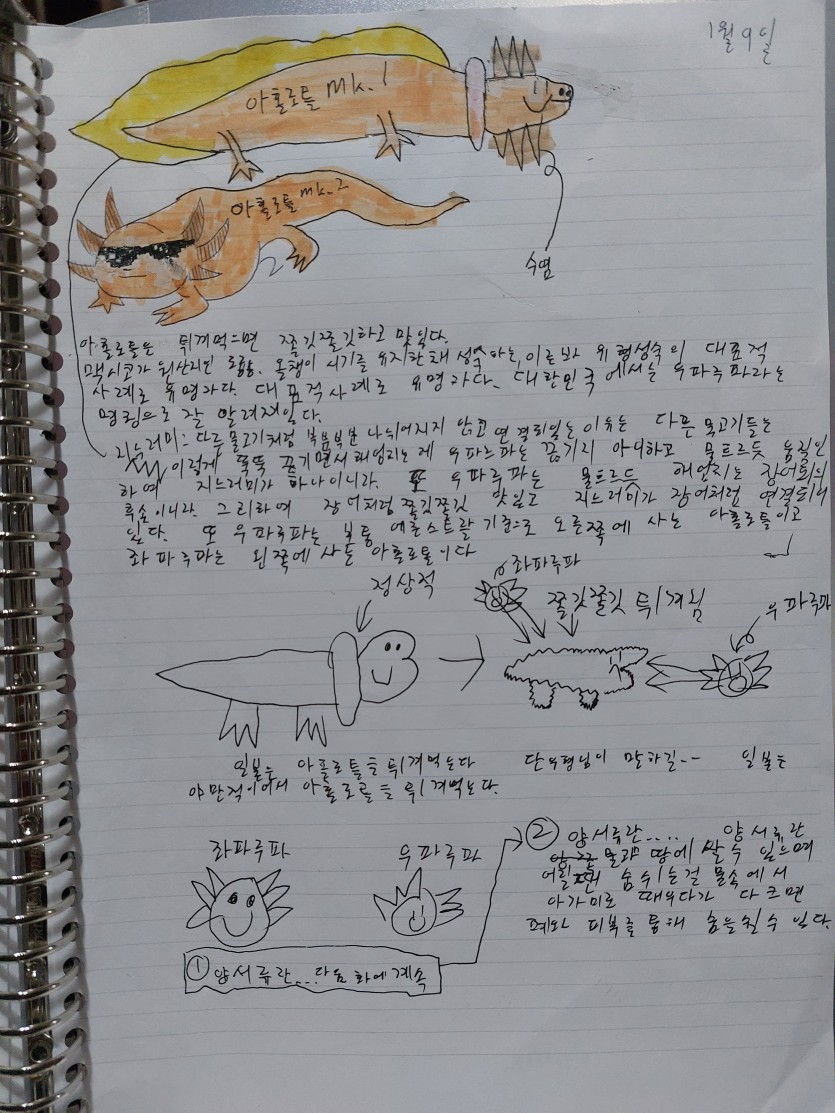 1월 9일
아홀로틀 Mk.1
아홀로틀 mk.2
수염
아홀로틀은 튀겨먹으면 쫄깃쫄깃하고 맛있다.
맥시코가 원산지인 도롱뇽. 올챙이 시기를 유지한채 성숙하는, 이른바 유형성숙의 대표적
사례로 유명하다. 대표적사례로 유명하다. 대한민국에서는 우파루파라는
명칭으로 잘 알려져있다.
지느러미: 다른 물고기처럼 부분부분 나뉘어지지 않고 연결되있는 이유는 다른 물고기들는
이렇게 뚝뚝 끊기면서 헤엄치는데 우파루파는 끊기지 아니하고 물흐르듯 움직인
하여 지느러미가 하나이니라. 또 우파루파는 물흐르듯 헤엄치는 장어의
후손이니라. 그리하여 장어처럼 쫄깃쫄깃 맛있고 지느러미가 장어처럼 연결되어
있다. 또 우파루파는 보통 에콰스트랄 기준으로 오른쪽에 사는 아홀로틀이고
좌파루파는 왼쪽에 사는 아홀로틀이다
정상적
좌파루파
쫄깃쫄깃 튀겨짐
우파루파
일본는 아홀로틀을 튀겨먹는다 단우형님이 말하길-- 일본은
야만적이어서 아홀로틀을 튀겨먹는다.
좌파루파
우파루파
① 양서류란... 다음 화에 계속
② 양서류란.... 양서류란
물과 땅에 살 수 있으며
어릴땐 숨쉬는걸 물속에서
아가미로 때우다가 다 크면
폐와 피부를 통해 숨을 쉴 수 있다.